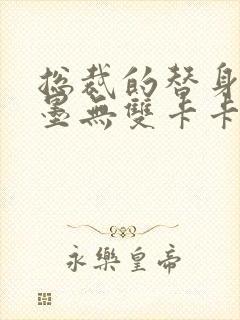 总裁的替身
墨無雙卡卡
永樂皇帝